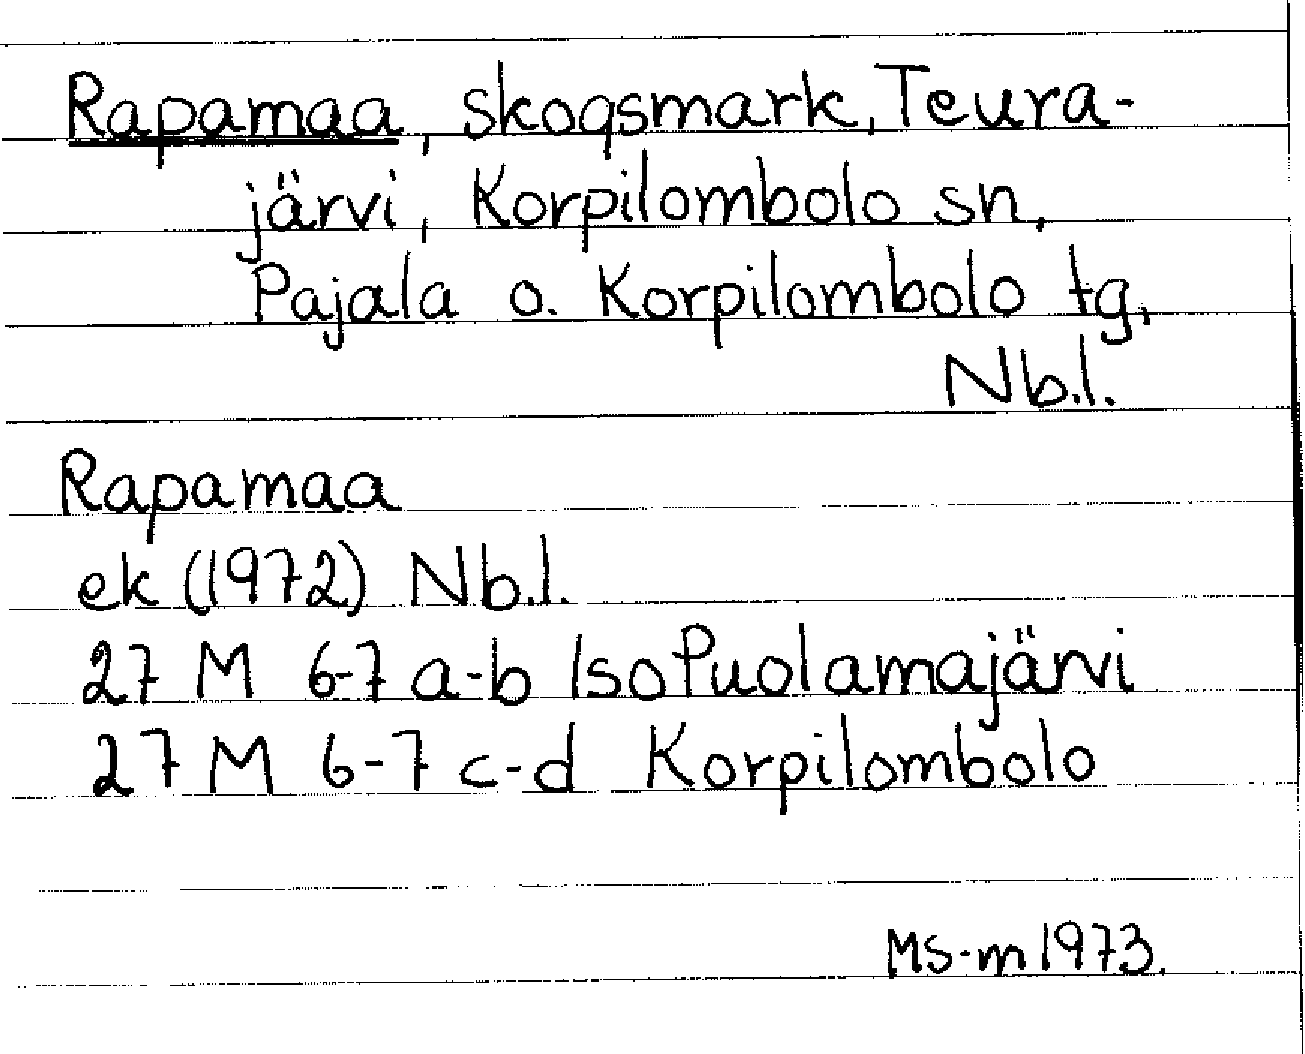 Rapamaa, skogsmark, Teura-
järvi, Korpilombolo sn,
Pajala o. Korpilombolo tg,
Nb.l.
Rapamaa
ek (1972) Nb.l.
27 M 6-7 a-b Iso Puolamajärvi
27 M 6-7 c-d Korpilombolo
MS-m 1973.